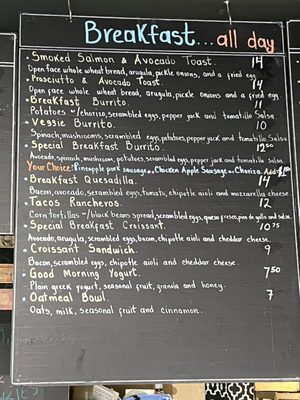 BreakFast... all day
• Smoked Salmon & Avocado Toast. 14
Open face whole wheat bread, arugula, pickle onions, and a fried egg.
• Prosciutto & Avocado Toast. 14
Open face whole wheat bread, arugula, pickle onions and a fried egg.
• Breakfast Burrito. 11
Potatoes w/chorizo, scrambled eggs, pepper jack and tomatillo Salsa
• Veggie Burrito. 10
Spinach, mushrooms, scrambled eggs, potatoes, pepper jack and tomatillo Salsa
• Special Breakfast Burrito. 12 50
Avocado, spinach, mushroom, potatoes, scrambled eggs, pepper jack and tomatillo salsa.
Your Choice: Pineapple pork Sausage. Chicken Apple Sausage. Chorizo. Add
• Breakfast Quesadilla. 14
Bacon, avocado, scrambled eggs, tomato, chipotle aioli and mozzarella cheese
• Tacos Rancheros. 12
Corn tortillas w/black beans spread, scrambled eggs, queso fresco, pico de gallo and salsa.
• Special Breakfast Croissant. 10 75
Avocado, arugula, scrambled eggs, bacon, chipotle aioli and cheddar cheese.
• Croissant Sandwich. 9
Bacon, scrambled eggs, chipotle aioli and cheddar cheese.
• Good Morning Yogurt. 7 50
Plain greek yogurt, seasonal fruit, granola and honey.
• Oatmeal Bowl. 7
Oats, milk, seasonal fruit and cinnamon.